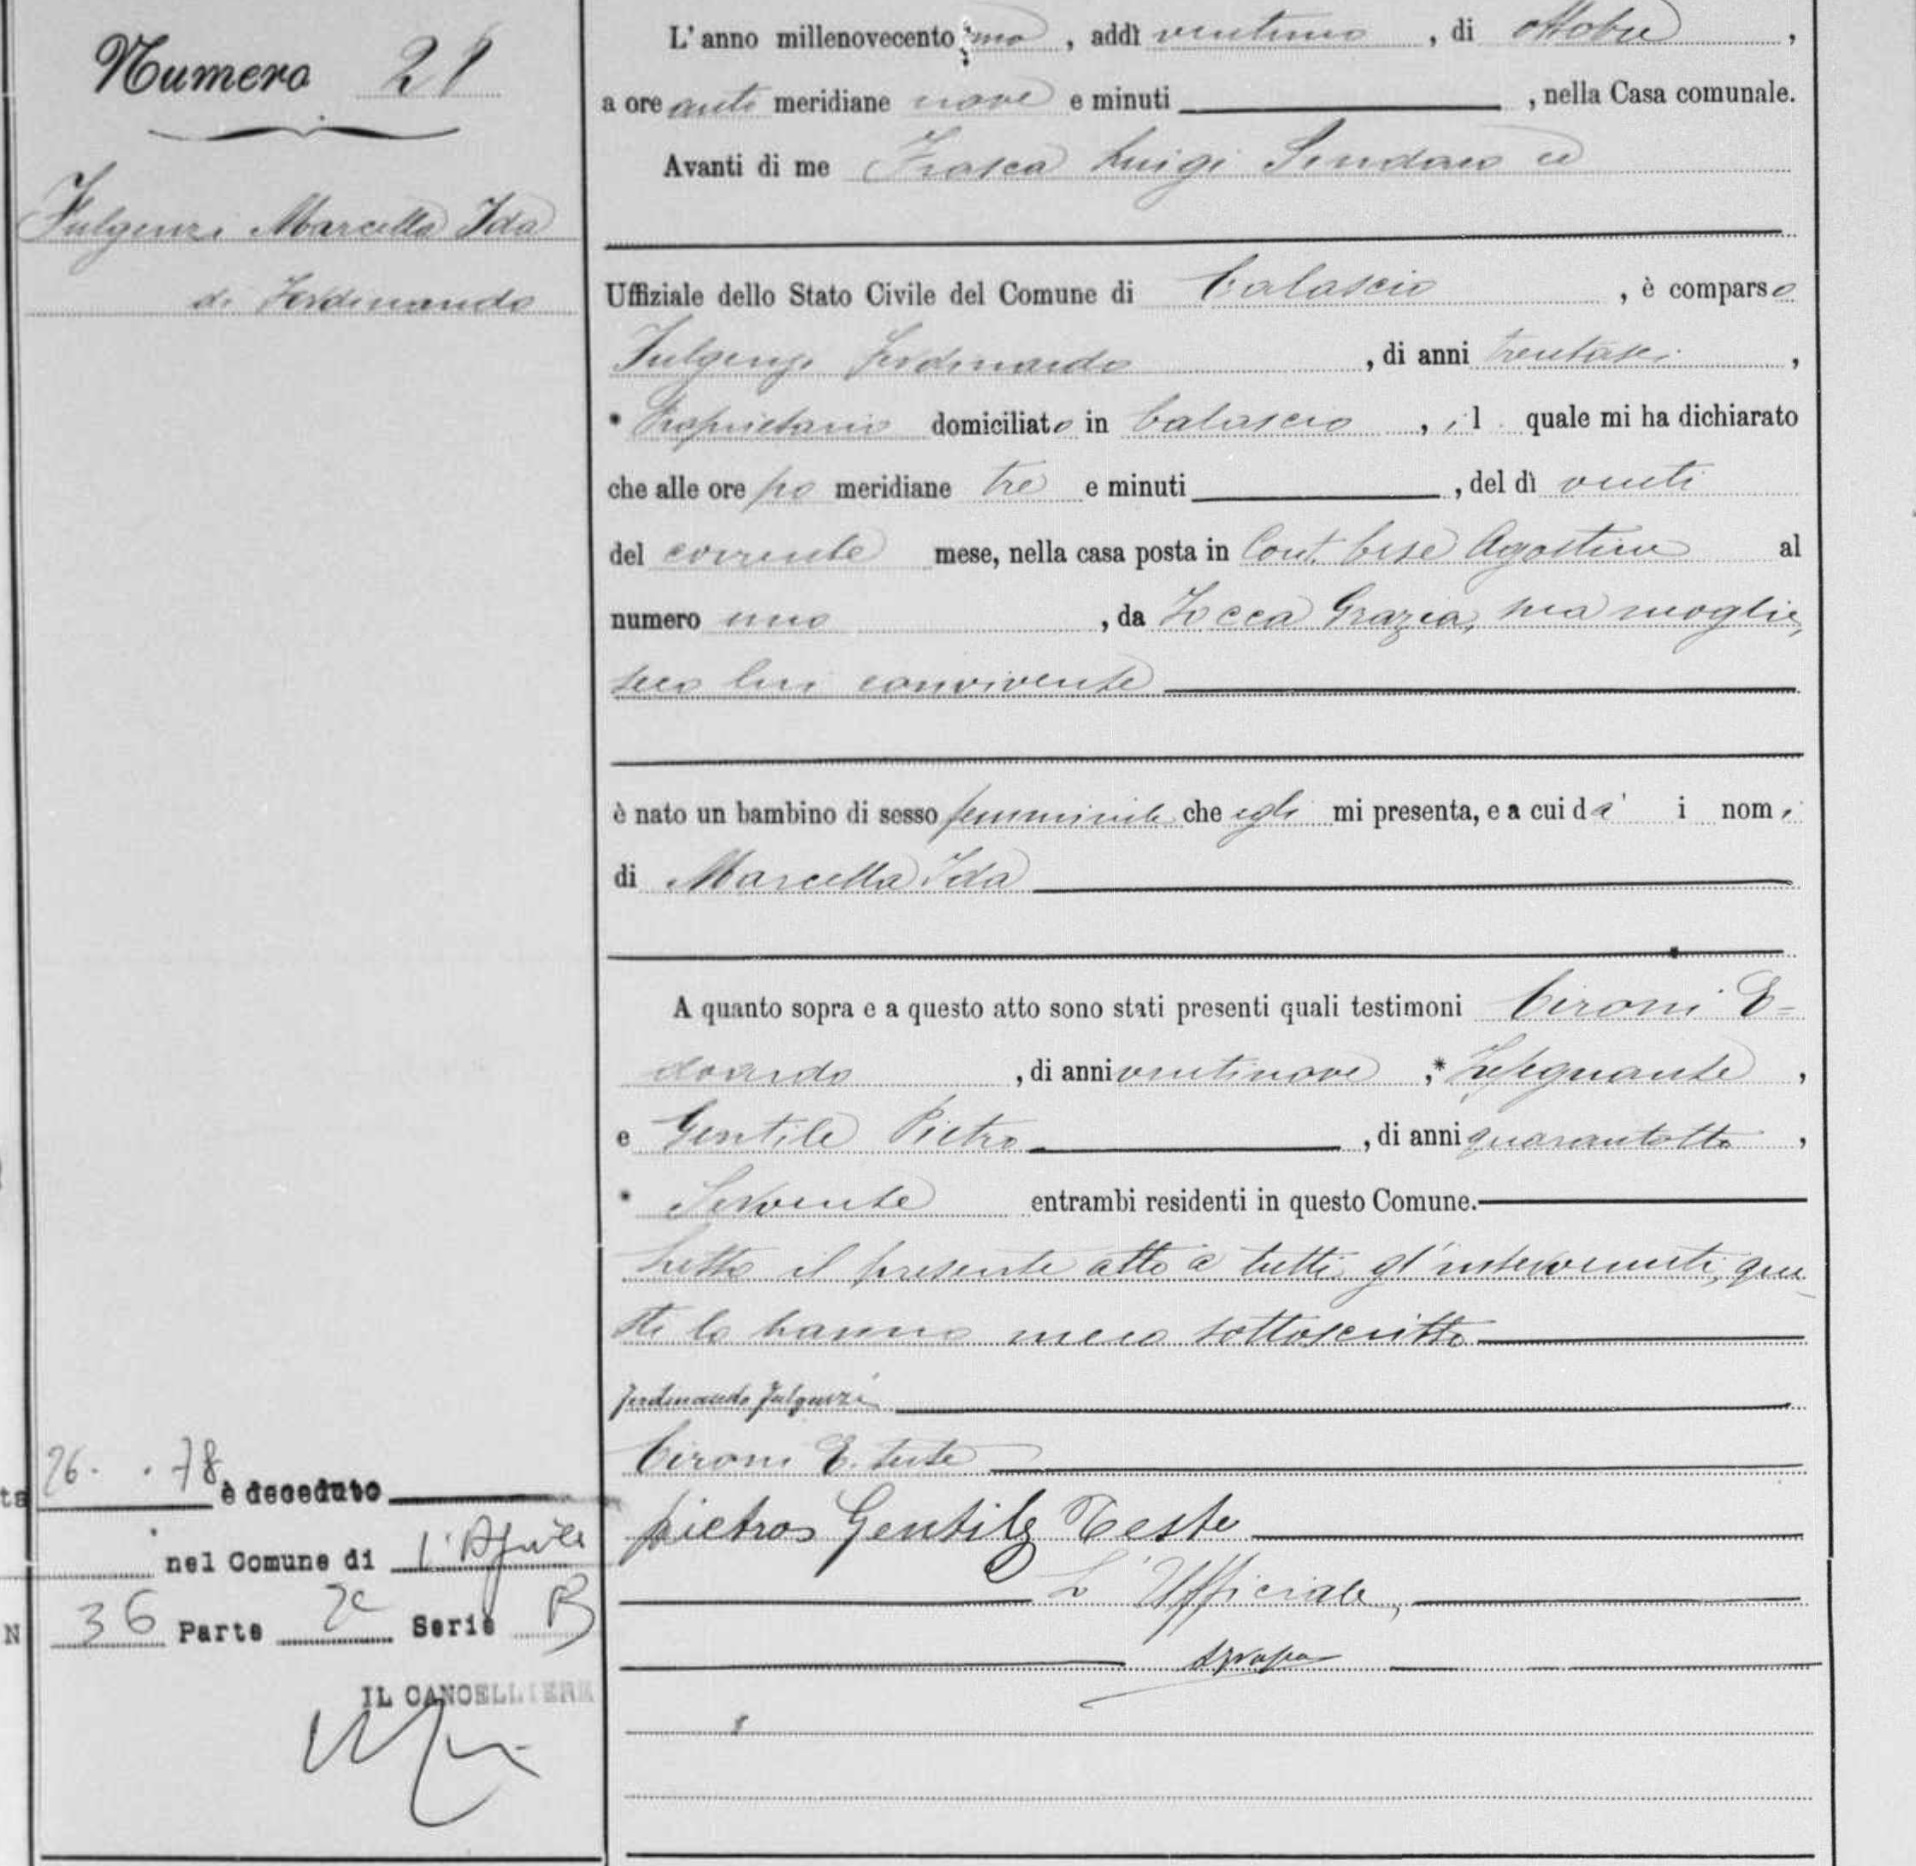 Numero 21
Fulgenzi Marcella Ida
di Ferdinando
L'anno millenovecento uno, addì ventuno, di ottobre,
a ore anti meridiane nove e minuti, nella Casa comunale.
Avanti di me Frasca Luigi Sindaco ed
Uffiziale dello Stato Civile del Comune di Calascio, è comparso
Fulgenzi Ferdinando, di anni trentasei,
* Proprietario domiciliato in Calascio, il quale mi ha dichiarato
che alle ore po meridiane tre e minuti, del dì venti
del corrente mese, nella casa posta in Cont. Agostino al
numero uno, da Zocca Grazia, sua moglie,
seco lui convivente
è nato un bambino di sesso femminile che egli mi presenta, e a cui dà i nomi
di Marcella Ida
A quanto sopra e a questo atto sono stati presenti quali testimoni Cironi E=
doardo, di anni ventinove, * Insegnante,
e Gentile Pietro, di anni quarantotto,
* Servente entrambi residenti in questo Comune.
Letto il presente atto a tutti gl'intervenuti, que-
sti lo hanno meco sottoscritto
Ferdinando Fulgenzi
Cironi E. teste
Pietro Gentile Teste
L'Ufficiale,
26. . 78 è deceduto
nel Comune di L'Aquila
N 36 Parte 2a Serie B
IL CANCELLIERE